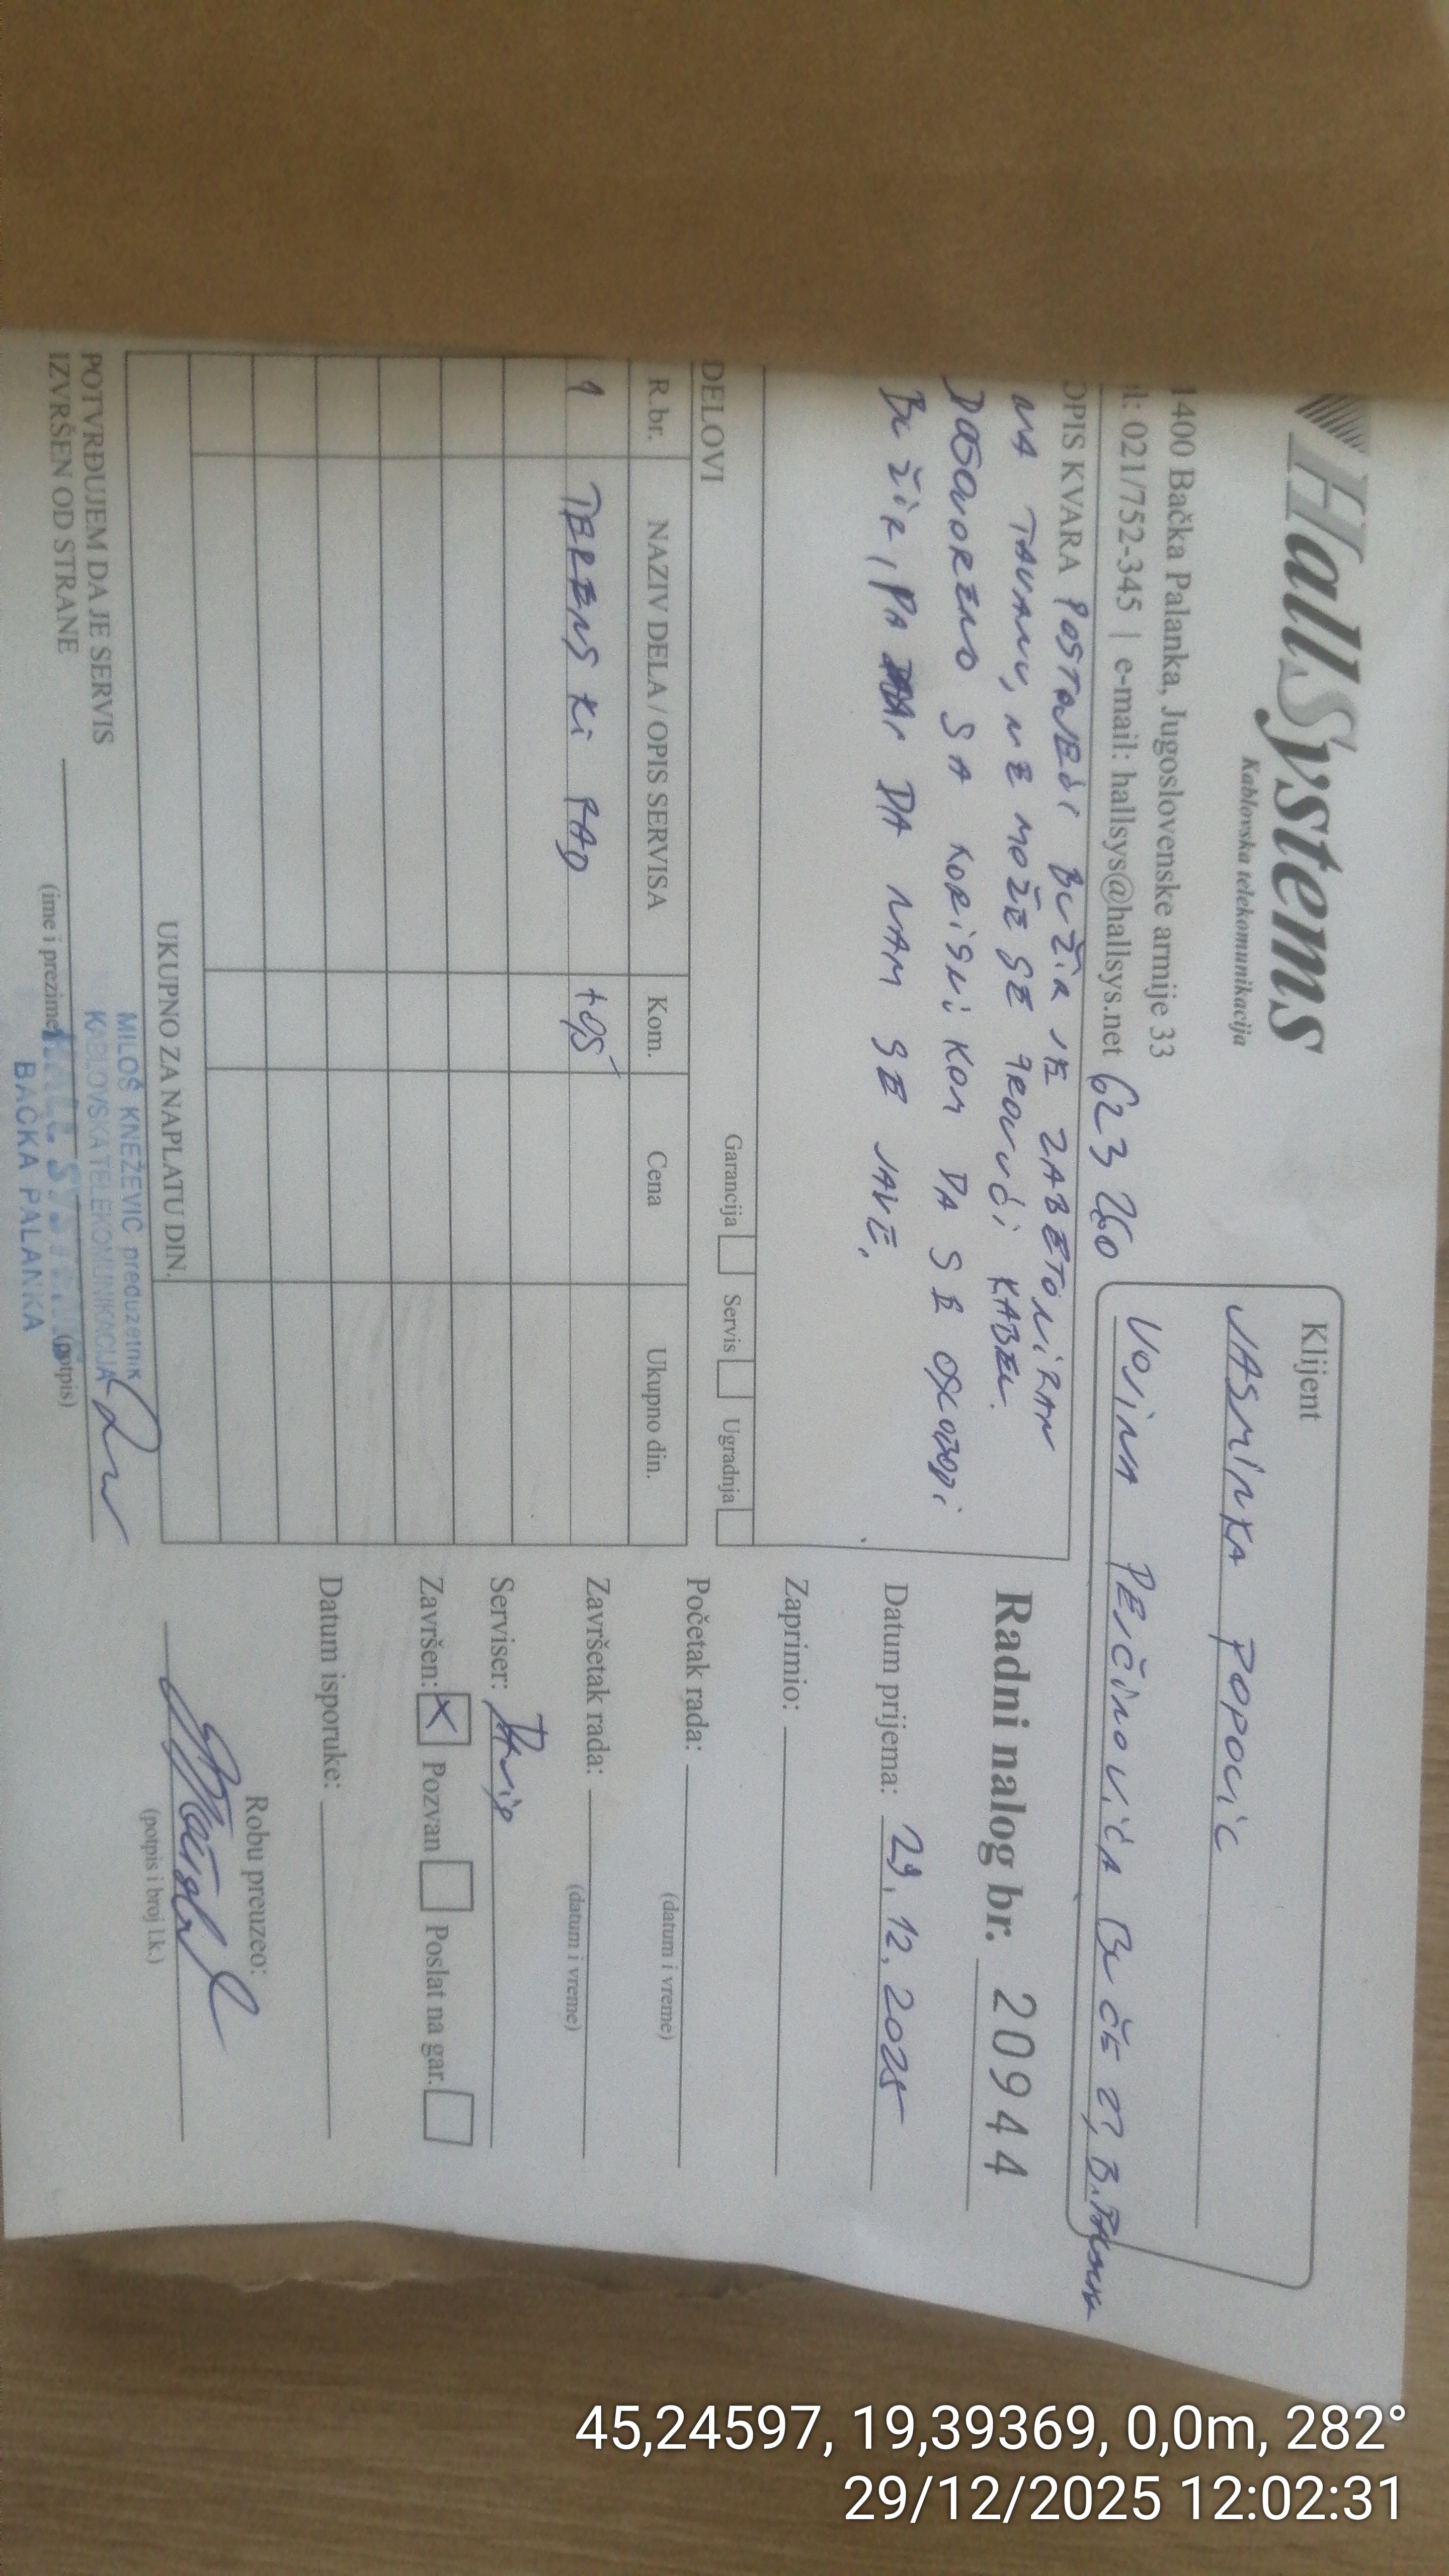 HallSystems
Kablovska telekomunikacija
1400 Bačka Palanka, Jugoslovenske armije 33
l: 021/752-345 | e-mail: hallsys@hallsys.net 623 260
Klijent
JASMINKA POPOVIC
VOJINA PEJČINOVIĆA B.PALANKA
OPIS KVARA POSTOJEĆI BUŽIR JE ZABETONIRAN
NA TAVANU, NE MOŽE SE PROVUĆI KABEL.
DOGOVORENO SA KORISNIKOM DA SE OSLOBODI
BUŽIR, PA DA NAM SE JAVE.
Radni nalog br. 20944
Datum prijema: 29.12.2025
Zaprimio:
Početak rada:
(datum i vreme)
Završetak rada:
(datum i vreme)
Serviser:
Završen: X Pozvan Poslat na gar.
Datum isporuke:
Robu preuzeo:
(potpis i broj l.k.)
Garancija Servis Ugradnja
DELOVI
R.br. NAZIV DELA / OPIS SERVISA Kom. Cena Ukupno din.
1 TERENSKI RAD
UKUPNO ZA NAPLATU DIN.
POTVRĐUJEM DA JE SERVIS
IZVRŠEN OD STRANE
(ime i prezime) (potpis)
MILOŠ KNEŽEVIĆ preduzetnik
KABLOVSKA TELEKOMUNIKACIJA
HALL SYSTEMS
BAČKA PALANKA
45,24597, 19,39369, 0,0m, 282°
29/12/2025 12:02:31